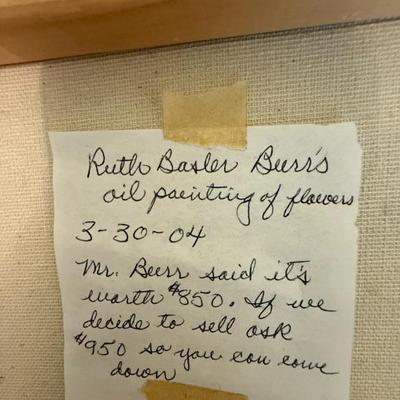 Ruth Basler Burr's
oil painting of flowers
3-30-04
Mr. Burr said it's
worth $850. If we
decide to sell ask
$950 so you can come
down